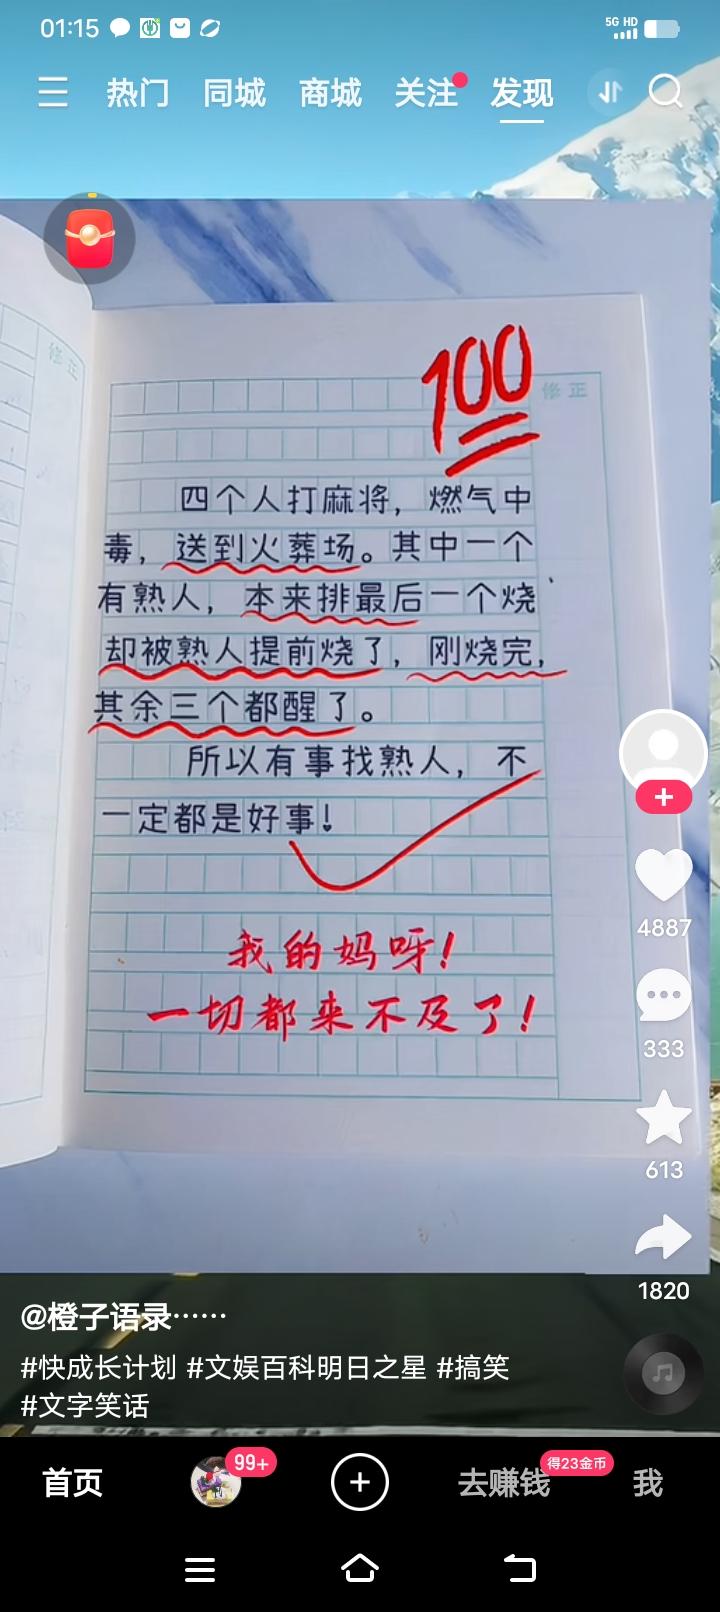 01:15
5G HD
热门 同城 商城 关注 发现
修正
修正
100
四个人打麻将，燃气中
毒，送到火葬场。其中一个
有熟人，本来排最后一个烧
却被熟人提前烧了，刚烧完，
其余三个都醒了。
所以有事找熟人，不
一定都是好事！
我的妈呀！
一切都来不及了！
4887
333
613
1820
@橙子语录……
#快成长计划 #文娱百科明日之星 #搞笑
#文字笑话
首页 99+ 去赚钱 得23金币 我